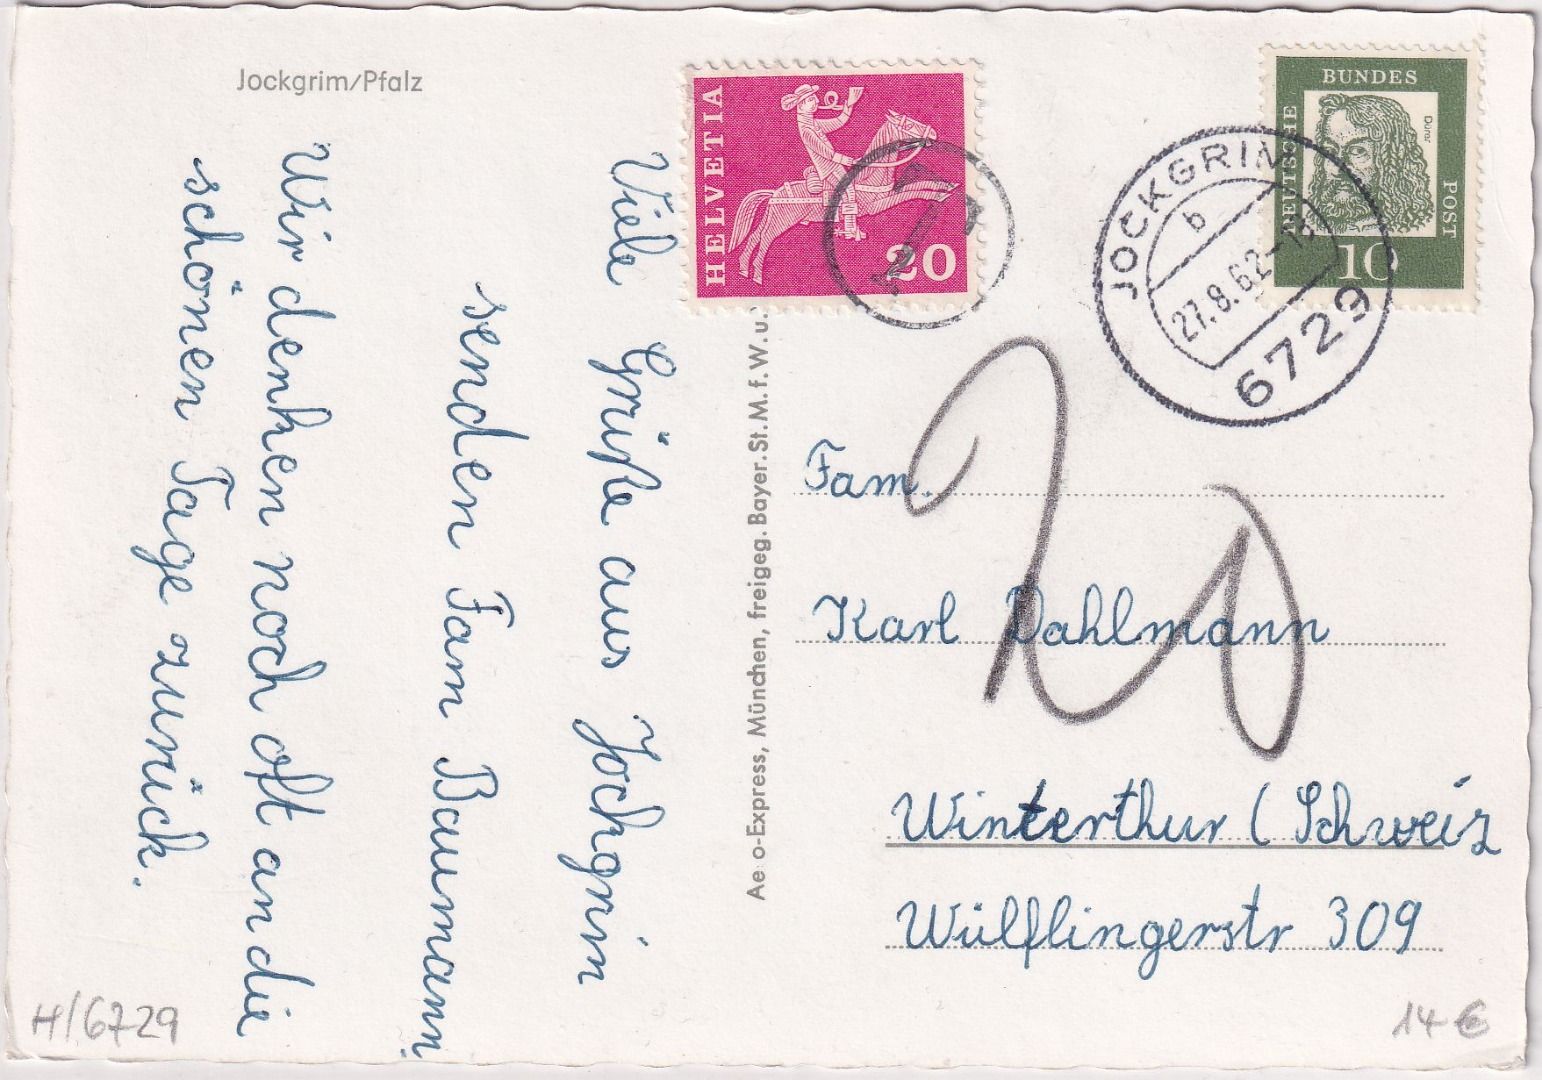 Jockgrim/Pfalz
Viele Grüße aus Jockgrim
senden Fam Baumann
Wir denken noch oft an die
schönen Tage zurück.
HELVETIA
20
DEUTSCHE
BUNDES
POST
Dürer
10
JOCKGRIM
b
27.8.62
6729
T
20
Fam.
Karl Dahlmann
Winterthur (Schweiz
Wülflingerstr 309
o-Express, München, freigeg. Bayer. St. M. f. W. u.
H/6729
14 €